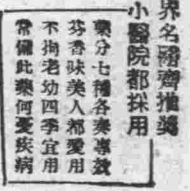 界名醫齊推獎
小醫院都採用
藥分七種各奏專效
芬香味美人都愛用
不拘老幼四季宜用
常備此藥何憂疾病